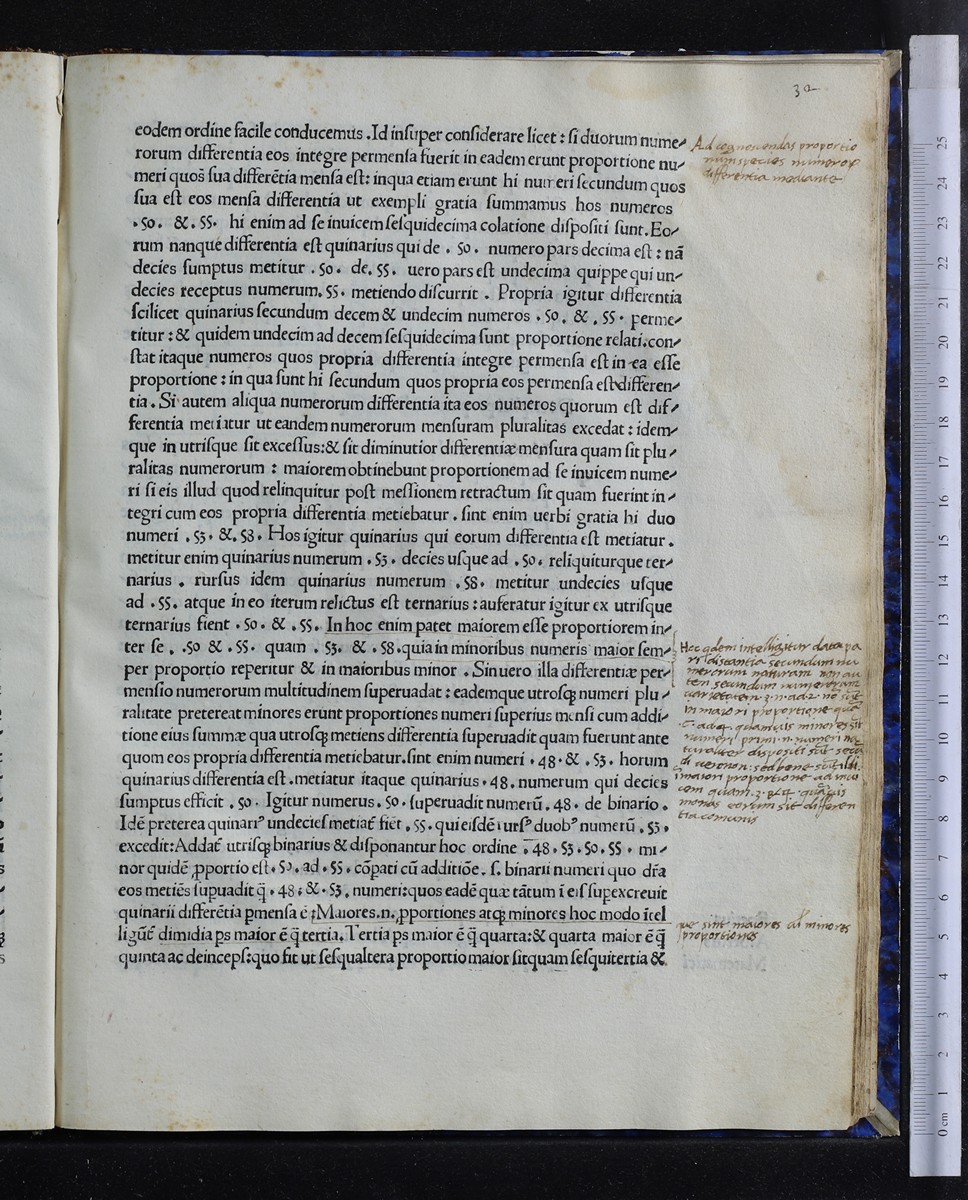 32
eodem ordine facile conducemus .Id inſuper conſiderare licet : ſi duorum nume⸗
rorum differentia eos integre permenſa fuerit in eadem erunt proportione nu⸗
meri quos ſua differētia menſa eſt: inqua etiam erunt hi numeri ſecundum quos
ſua eſt eos menſa differentia ut exempli gratia ſummamus hos numeros
.50. &. 55. hi enim ad ſe inuicem ſeſquidecima colatione diſpoſiti ſunt. Eo⸗
rum nanque differentia eſt quinarius qui de . 50. numero pars decima eſt : nā
decies ſumptus metitur .50. de. 55. uero pars eſt undecima quippe qui un⸗
decies receptus numerum. 55. metiendo diſcurrit . Propria igitur differentia
ſcilicet quinarius ſecundum decem & undecim numeros . 50. & . 55. perme⸗
titur : & quidem undecim ad decem ſeſquidecima ſunt proportione relati.con⸗
ſtat itaque numeros quos propria differentia integre permenſa eſt in ea eſſe
proportione : in qua ſunt hi ſecundum quos propria eos permenſa eſt differen⸗
tia . Si autem aliqua numerorum differentia ita eos numeros quorum eſt dif⸗
ferentia metiatur ut eandem numerorum menſuram pluralitas excedat : idem⸗
que in utriſque ſit exceſſus:& ſit diminutior differentiæ menſura quam ſit plu⸗
ralitas numerorum : maiorem obtinebunt proportionem ad ſe inuicem nume⸗
ri ſi eis illud quod relinquitur poſt meſſionem retractum ſit quam fuerint in⸗
tegri cum eos propria differentia metiebatur . ſint enim uerbi gratia hi duo
numeri . 53. &. 58. Hos igitur quinarius qui eorum differentia eſt metiatur .
metitur enim quinarius numerum . 53. decies uſque ad . 50. reliquiturque ter⸗
narius . rurſus idem quinarius numerum . 58. metitur undecies uſque
ad .55. atque in eo iterum relictus eſt ternarius : auferatur igitur ex utriſque
ternarius fient . 50. & . 55. In hoc enim patet maiorem eſſe proportiorem in⸗
ter ſe . .50 & .55. quam . 53. & . 58.quia in minoribus numeris maior ſem⸗
per proportio reperitur & in maioribus minor . Sin uero illa differentiæ per⸗
menſio numerorum multitudinem ſuperuadat : eademque utroſqꝫ numeri plu⸗
ralitate pretereat minores erunt proportiones numeri ſuperius menſi cum addi⸗
tione eius ſummæ qua utroſqꝫ metiens differentia ſuperuadit quam fuerunt ante
quom eos propria differentia metiebatur.ſint enim numeri . 48. & . 53. horum
quinarius differentia eſt .metiatur itaque quinarius. 48. numerum qui decies
ſumptus efficit . 50. Igitur numerus. 50. ſuperuadit numerū. 48. de binario .
Idē preterea quinariꝰ undecieſ metiat̄ fiēt . 55. qui eiſdē iurſꝰ duobꝰ numerū . 53.
excedit:Addat̄ utriſqꝫ binarius & diſponantur hoc ordine . 48 . 53 . 50 . 55 . mi⸗
nor quidē ꝓportio eſt . 50. ad . 55. cōpati cū additiōe. ſ. binarii numeri quo dr̄a
eos metiēs ſupuadit q̄ . 48 : & . 53. numeri:quos eadē quæ tātum ī eiſ ſupexcreuit
quinarii differētia pmenſa ē :Maiores.n. ꝓportiones atqꝫ minores hoc modo ītel
ligūt̄ dimidia ps maior ē q̄ tertia. Tertia ps maior ē q̄ quarta:& quarta maior ē q̄
quinta ac deincepſ:quo fit ut ſeſqualtera proportio maior ſit quam ſeſquitertia &.
Ad cognoscendas proportio
num species numeroꝝ
differentia mediante
Hoc qdem intelligitur data pa
ri distantia secundum nu
merorum naturam non au
tem secundum numerorum
in maiori proportione
quamuis minores sit
numeri primi .n. numeri na
turaliter dispositi
maiori proportione
monas eorum sit differen
tia comunis
que sint maiores aut minores
proportiones
25
24
23
22
21
20
19
18
17
16
15
14
13
12
11
10
9
8
7
6
5
4
3
2
1
0 cm